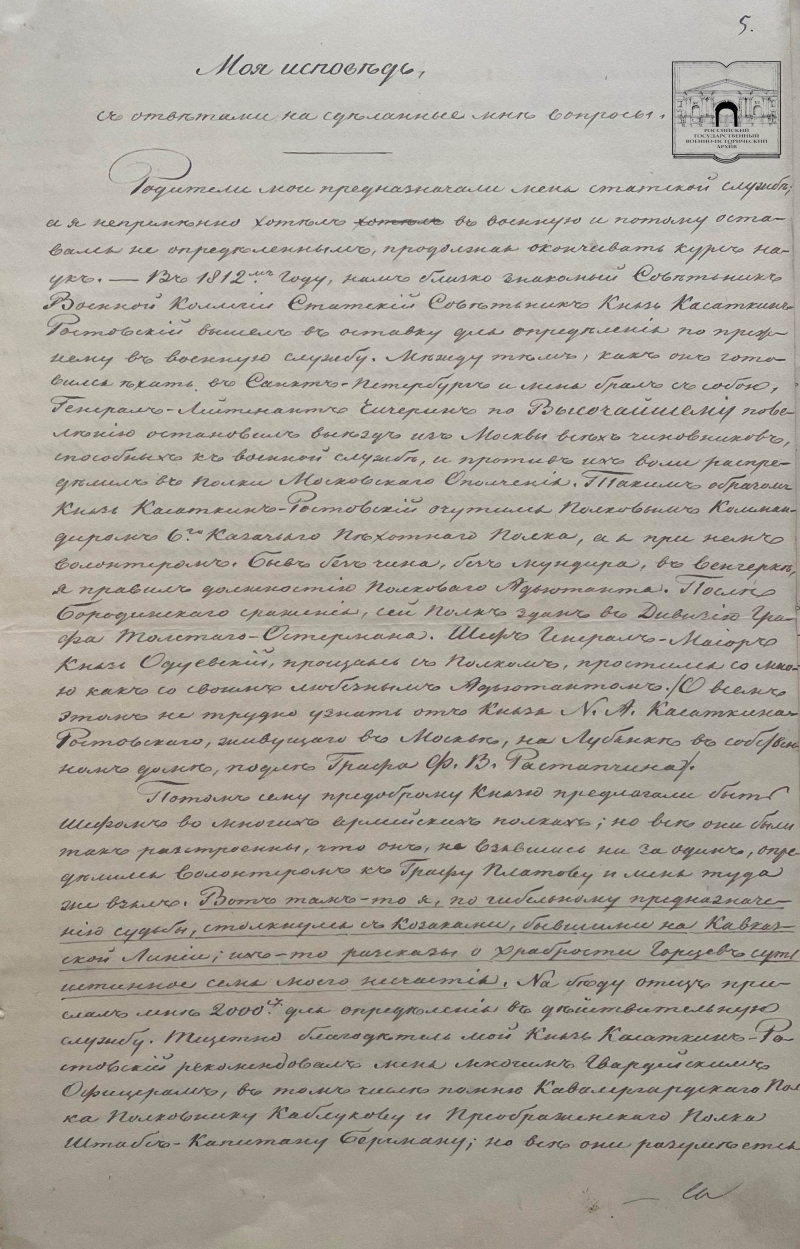 5.
Моя исповѣдь,
съ отвѣтами на сдѣланные мнѣ вопросы.
РОССИЙСКИЙ
ГОСУДАРСТВЕННЫЙ
ВОЕННО-ИСТОРИЧЕСКИЙ
АРХИВ
Родители мои предназначали меня статской службѣ;
а я непремѣнно хотѣлъ хотѣлъ въ военную и потому оста-
вался не опредѣленнымъ, продолжая окончивать курсъ на-
укъ. — Въ 1812мъ Году, намъ близко знакомый Совѣтникъ
Военной Коллегіи Статскій Совѣтникъ Князь Касаткинъ
Ростовскій вышелъ въ отставку для опредѣленія по преж-
нему въ военную службу. Между тѣмъ, какъ онъ гото-
вился ѣхать въ Санктъ-Петербургъ и меня бралъ съ собою,
Генералъ-Лейтенантъ Чичеринъ по Высочайшему пове-
лѣнію остановилъ выѣздъ изъ Москвы всѣхъ чиновниковъ,
способныхъ къ военной службѣ, и противъ ихъ воли распре-
дѣлилъ въ Полки Московскаго Ополченія. Такимъ образомъ
Князь Касаткинъ-Ростовскій очутился Полковымъ Коман-
диромъ 6го Казачьяго Пѣхотнаго Полка, а я при немъ
волонтеромъ. Бывъ безъ чина, безъ мундира, въ венгеркѣ,
я правилъ должностію Полковаго Адъютанта. Послѣ
Бородинскаго сраженія, сей Полкъ зданъ въ Дивизію Гра-
фа Толстаго-Остермана. Шефъ Генералъ-Маіоръ
Князь Одуевскій, прощаясь съ Полкомъ, простился со мно-
ю какъ со своимъ любезнымъ Адъютантомъ. /О всемъ
этомъ не трудно узнать отъ Князя N. А. Касаткина-
Ростовскаго, живущаго въ Москвѣ, на Лубянкѣ въ собствен
номъ домѣ, подлѣ Графа Ф. В. Растапчина/.
Потомъ сему предоброму Князю предлагали быть
Шефомъ во многихъ армійскихъ полкахъ; но всѣ они были
такъ разстроенны, что онъ, не взявшись ни за одинъ, опре
дѣлился волонтеромъ къ Графу Платову и меня туда
же взялъ. Вотъ тамъ-то я, по гибельному предназначе-
нію судьбы, столкнулся съ Козаками, бывшими на Кавказ-
ской Линіи; ихъ-то разсказы о храбрости Горцевъ суть
истинное семя моего несчастія. На бѣду отецъ при-
слалъ мнѣ 2000 для опредѣленія въ дѣйствительную
службу. Тщетно благодѣтель мой Князь Касаткинъ-Ро
стовскій рекомендовалъ меня многимъ Гвардейскимъ
Офицерамъ, въ томъ числѣ помню Кавалергардскаго Пол
ка Полковнику Каблукову и Преображенскаго Полка
Штабсъ-Капитану Бергману; но всѣ они разумѣется